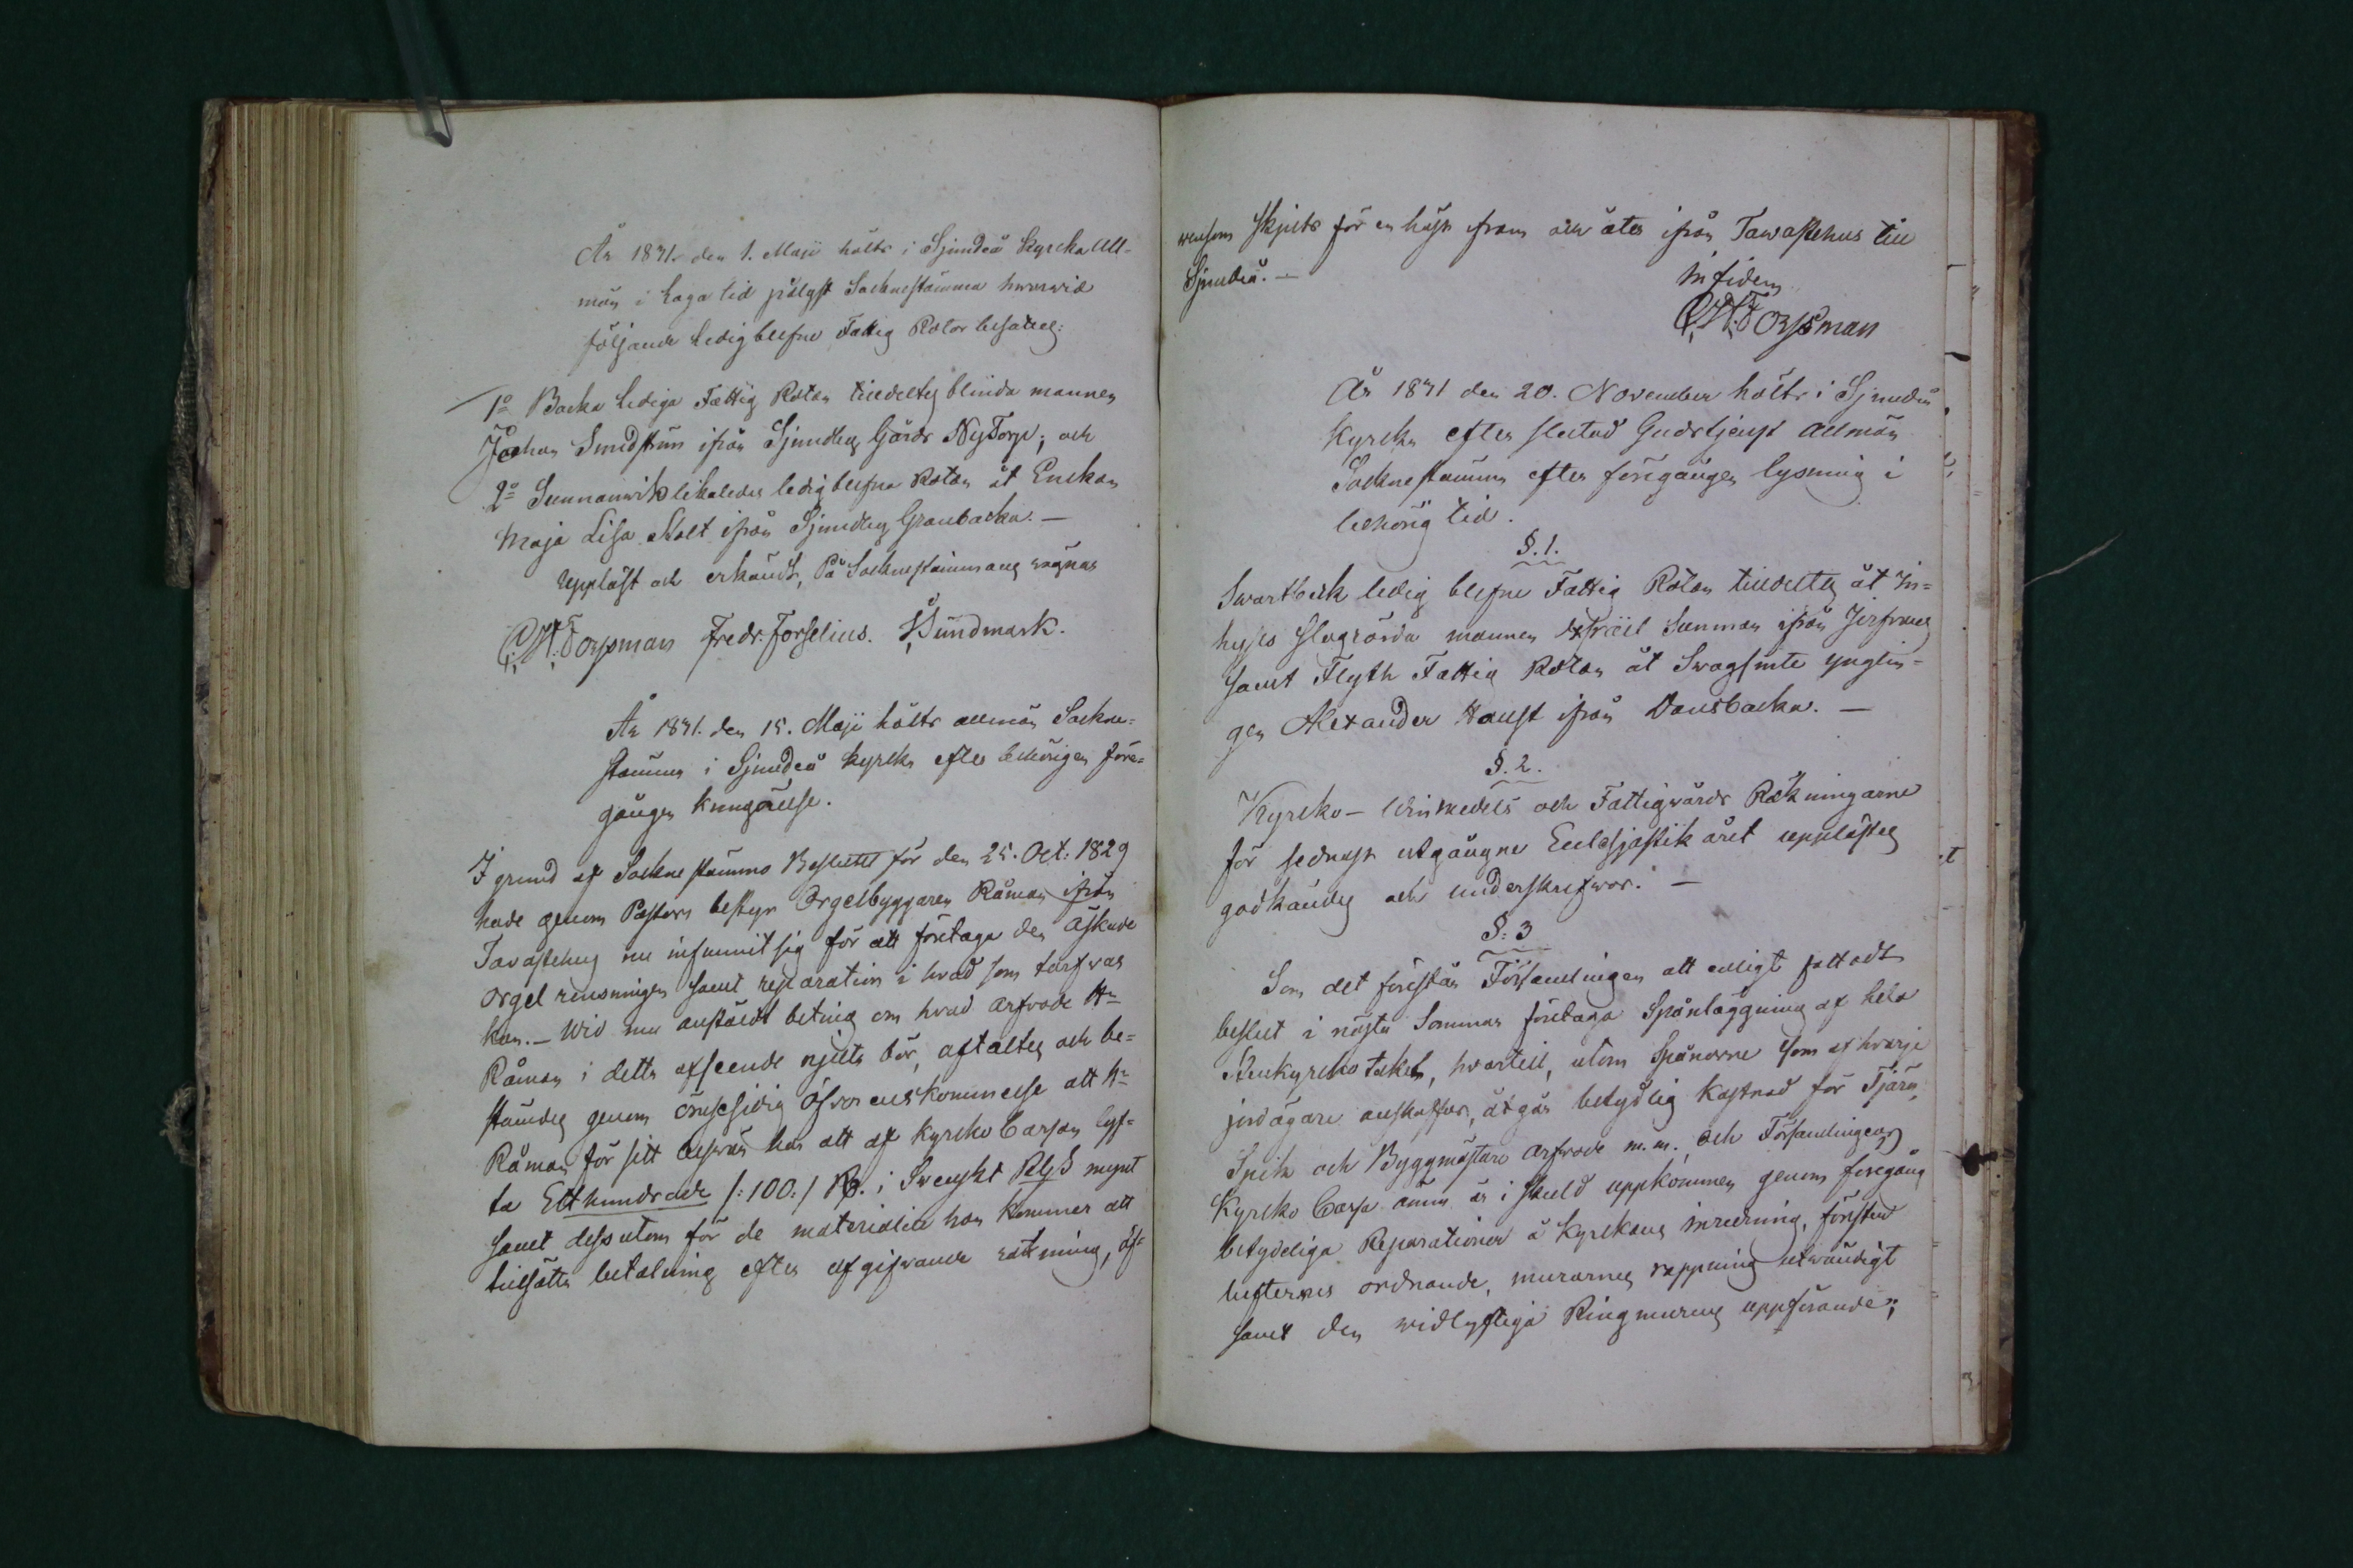 År 1831. den 1. Maji hölts i Sjundeå Kyrcka All-
män i Laga tid pålyst Sockenstämma hvarwid
följande Ledigblefne Fattig Rotar besattes:
1o Backa Lediga Fattig Rotan tilldeltes blinda mannen
Johan Sundström ifrån Sjundby Gårds NyTorp; och
2o Sunnanwik likaledes ledigblefne Rotan åt Enckan
Maja Lisa Stolt ifrån Sjundby Granbacka. —
Uppläst och erkändt, På Sockenstämmans wägnar
C.H. Forssman Fredr. Forselius. Sundmark.
År 1831. den 15. Maji hölts allmän Sockne-
stämma i Sjundeå kyrcka efter behörigen före-
gången kungörelse.
I grund af Sockne stämmo Beslutet för den 25. Oct. 1829
hade genom Pastors bestyr Orgelbyggaren Råman ifrån
Tavastehus nu infunnit sig för att företaga den äskade
orgel rensningen samt reparation i hvad som tarfwas
kan. — Wid nu anstäldt beting om hvad arfvode Hr
Råman i detta afseende njuta bör, aftaltes och be-
stämdes genom ömsesidig öfverenskommelse att Hr
Råman för sitt beswär har att af Kyrcko Cassan lyf-
ta Etthundrade /:100:/ R. i Svenskt RgS mynt
samt dessutom för de materialier han kommer att
tillsätta betalning efter afgifwande räkning, äf-
wensom skjuts för en häst fram och åter ifrån Tawastehus till
Sjundeå. —
In fidem
C.H. Forssman
År 1831 den 20. November hölts i Sjundeå
Kyrcka efter slutad Gudstjenst allmän
Socknestämma efter föregången lysning i
behörig tid.
§. 1.
Swartbäck ledig blefne Fattig Rotan tilldeltes åt In-
hyses slagrörda mannen Gunman ifrån
samt Flyth Fattig Rotan åt Swagsinte ynglin-
gen Alexander Haust ifrån Dansbacka. —
§. 2.
Kyrcko- Winmedels och Fattigwårds Räkningarne
för sednast utgångne Ecclesjastik året upplästes
godkändes och underskrefwos. —
§. 3
Som det förestår Församlingen att enligt fattadt
beslut i nästa Sommar företaga Spånläggning af hela
Stenkyrcko taket, hvartill, utom Spånorne som af hvarje
jordägare anskaffas, åtgår betydlig kostnad för Tjära,
Spik och Byggmästare arfvode m. m., och Församlingens
Kyrcko Cassa ännu är i skuld uppkommen genom föregång
betydeliga Reparationer å Kyrckans inredning, fönster
lufternes ordnande, murarnes rappning utwändigt
samt den widlyftiga Ringmurens uppförande;